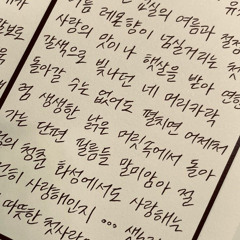 교실의 여름과 젊
레몬향이 넘실거리는 첫
사랑의 맛이나 햇살을 받아 연한
갈색으로 빛나던 네 머리카락
돌아갈 수는 없어도 펼치면 어제처
럼 생생한 낡은 머릿속에서 돌아
가는 단편 필름들 말미암아 절
의 청춘 화성에서도 사랑해는
히 사랑해이지 ...
따뜻한 첫사랑